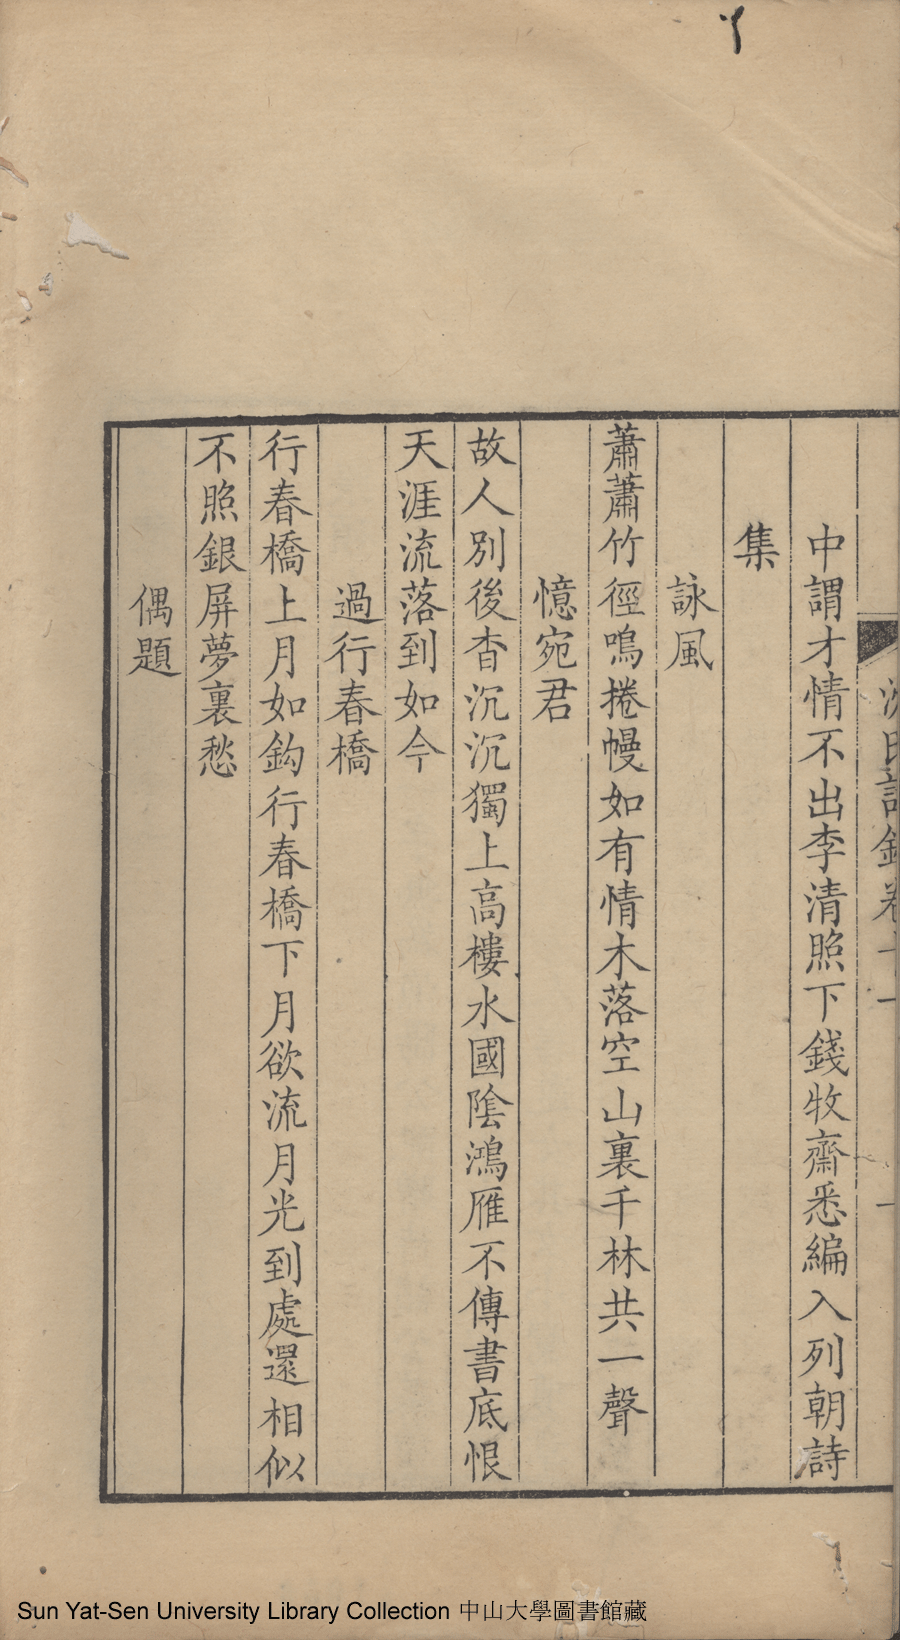 沈氏詩錄卷十一 一
中謂才情不出李清照下錢牧齋悉編入列朝詩
集
詠風
蕭蕭竹徑鳴捲幔如有情木落空山裏千林共一聲
憶宛君
故人別後杳沉沉獨上高樓水國陰鴻雁不傳書底恨
天涯流落到如今
過行春橋
行春橋上月如鈎行春橋下月欲流月光到處還相似
不照銀屏夢裏愁
偶題
Sun Yat-Sen University Library Collection 中山大學圖書館藏